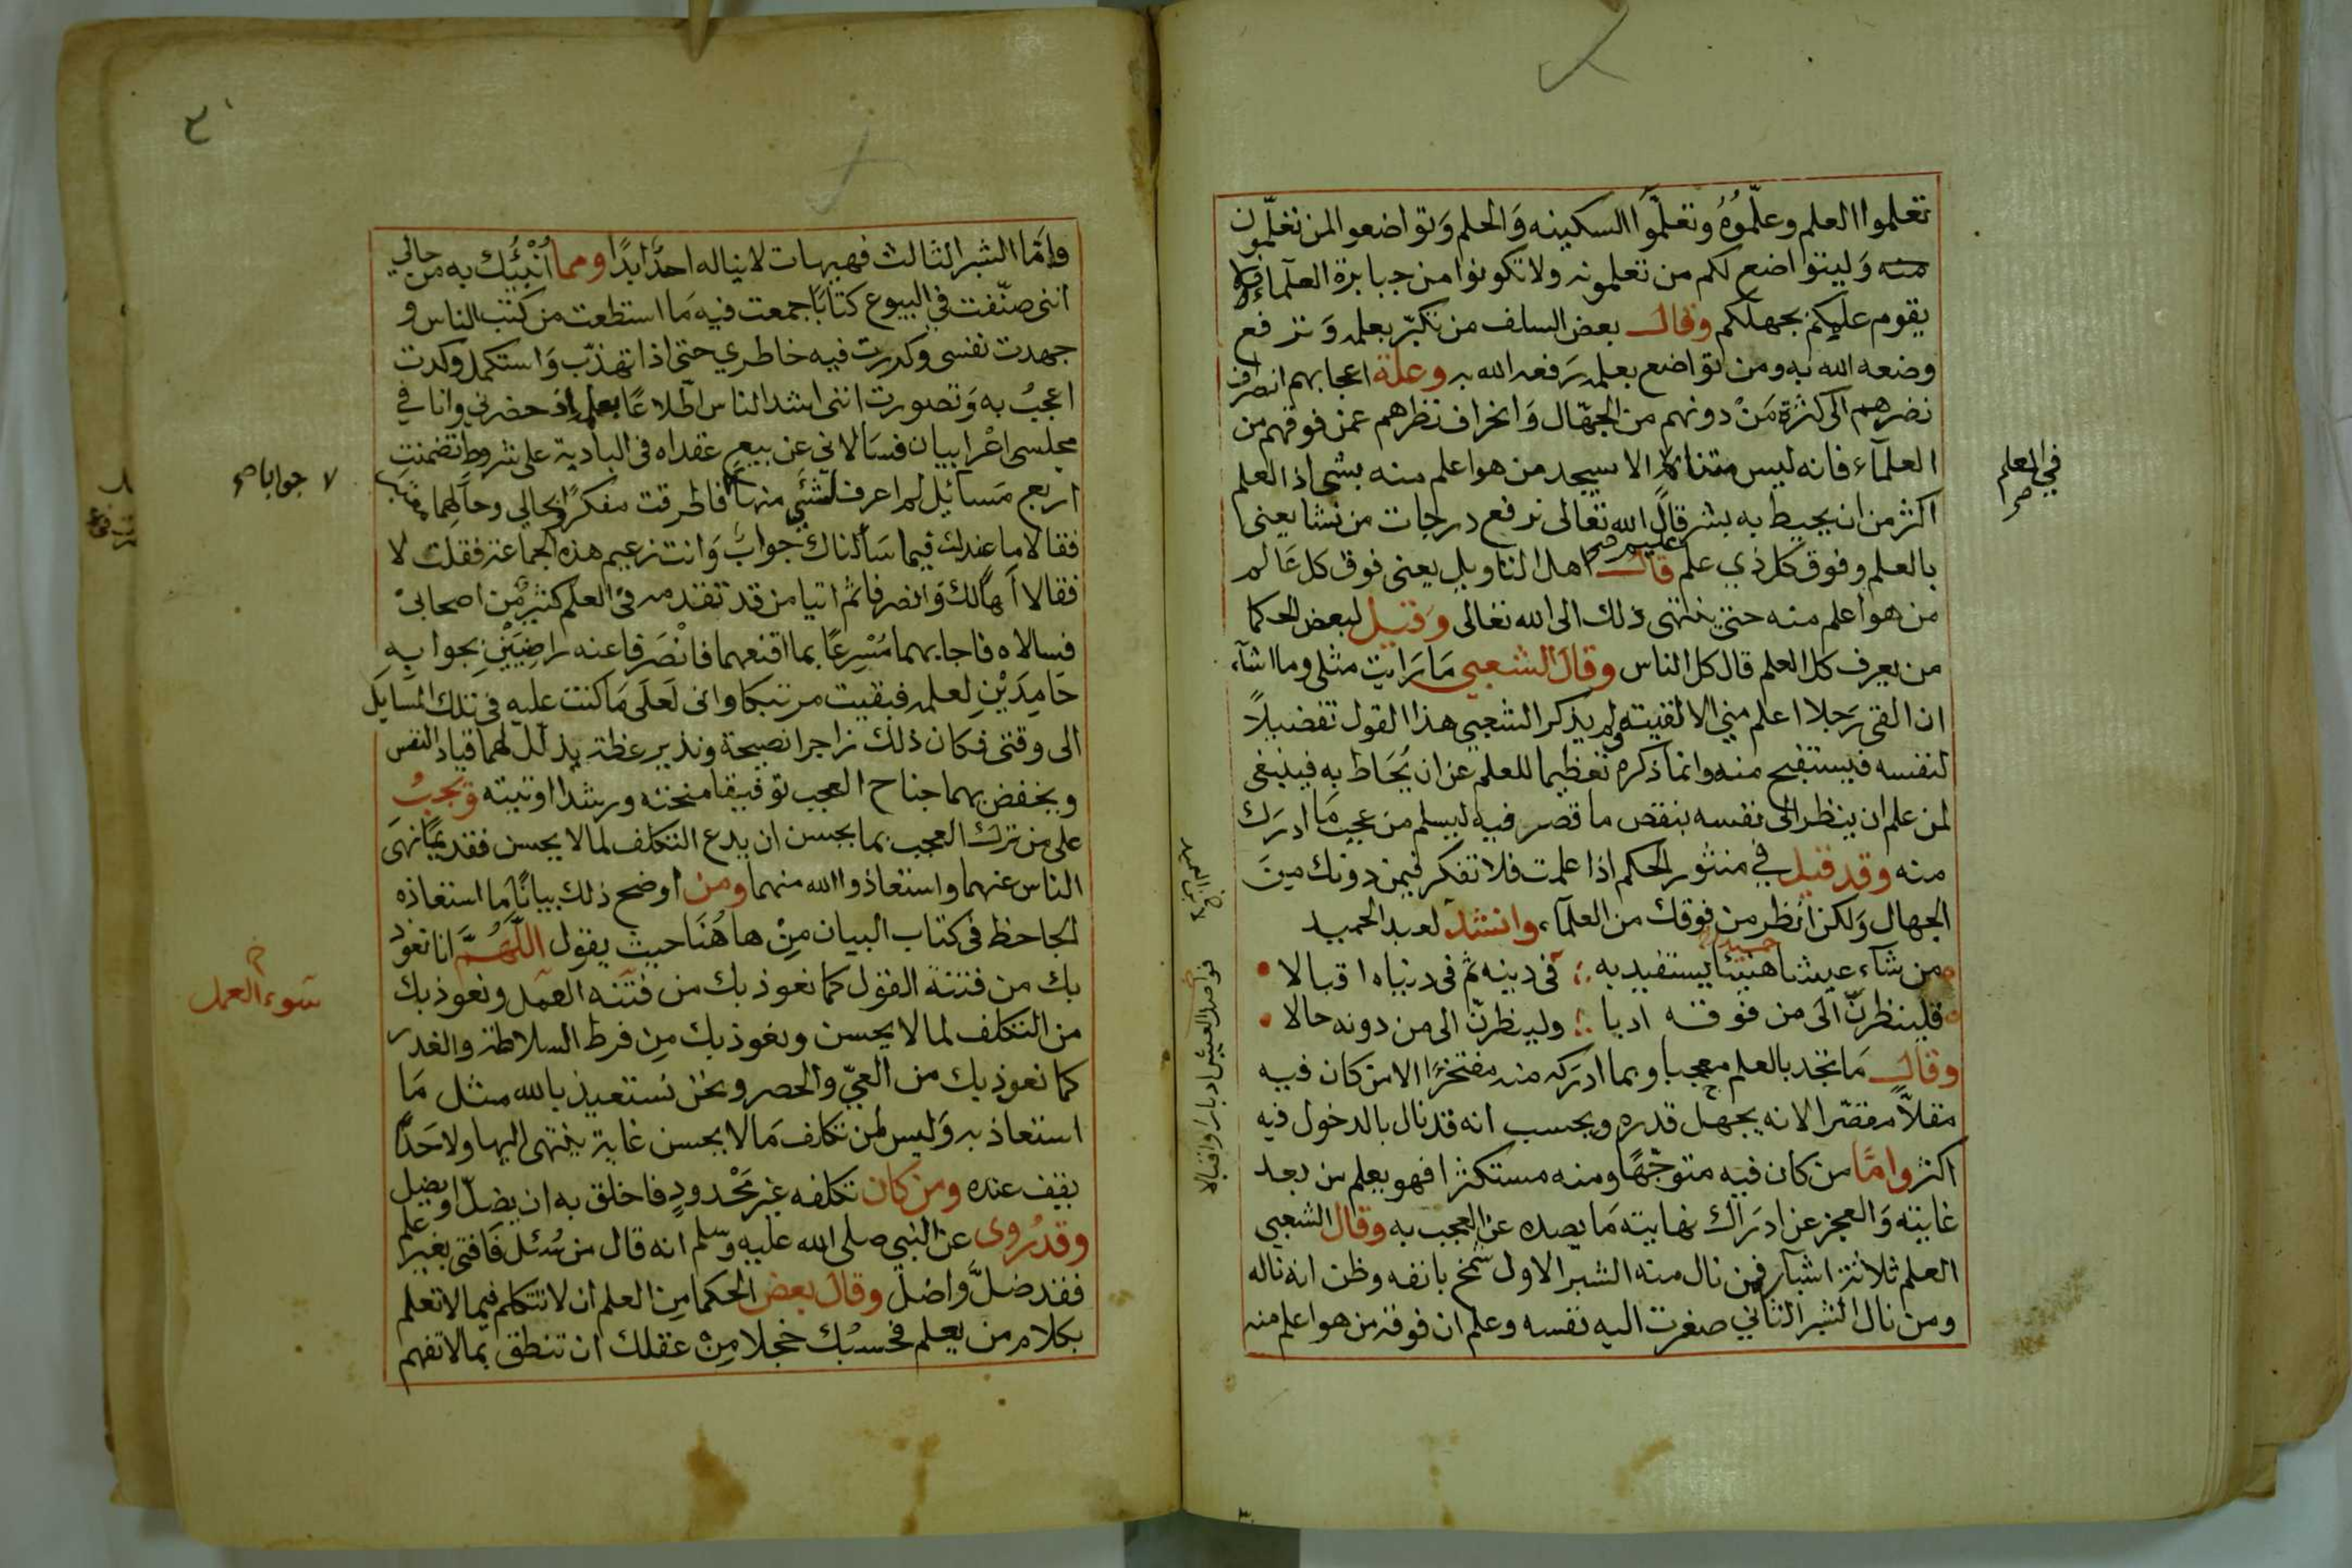 تعلموا العلم وعلّموُهُ وتعلّموا السكينه وَالحلم وَتواضعوا لمن تعلّمون
منه وَليتواضع لكم من تعلمونه ولا تكونوا من جبابرة العلمآء فلا
يقوم عليكم بجهلكم وقال بعض السلف من تكبّر بعلمه وَترفع
وضعه الله به ومن تواضع بعلمه رَفعه الله به وعلة اعجابهم انصراف
نضرهم الى كثرة مَنْ دونهم من الجهّال وَانحراف نظرهم عمن فوقهم من
العلمآء فانه ليس متناه الا سيجد من هو اعلم منه بشى اذ العلم
اكثر من ان يحيط به بشر قال الله تعالى نرفع درجات من نشا يعنى
بالعلم وفوق كل ذي علم عليم صح قال اهل التاويل يعنى فوق كل عَالم
من هو اعلم منه حتى ينتهى ذلك الى الله تعالى وَقيل لبعض الحكما
من يعرف كل العلم قال كل الناس وقال الشعبي مَا رَايت مثلى وما اشآء
ان القى رَجلا اعلم مني الا لقيته ولم يذكر الشعبي هذا القول تفضيلاً
لنفسه فيستقبح منه وانما ذكره تعظيما للعلم عن ان يُحَاط به فينبغى
لمن علم ان ينظر الى نفسه بنقص ما قصر فيه ليسلم من عجب مَا ادرَك
منه وقد قيل في منثور الحكم اذا علمت فلا تفكر فيمن دونك من
الجهال وَلكن انظر من فوقك من العلمآء وانشد لعبد الحميد
من شآء عيشا هنيئا يستفيد به في دينه ثم فى دنياه اقبالا
فلينظرنّ الى من فوقه ادبا ولينظرنّ الى من دونه حالا
وقال مَا تجد بالعلم معجبا وبما ادرَكه منه مفتخرًا الا من كان فيه
مقلاًّ مقصّرا لانه يجهل قدره ويحسب انه قد نال بالدخول فيه
اكثر وامَّا من كان فيه متوجّهًا ومنه مستكثرا فهو يعلم من بعد
غايته وَالعجز عن ادرَاك نهايته مَا يصده عن العجب به وقال الشعبي
العلم ثلاثة اشبآر فمن نال منه الشبر الاول شمخ بانفه وظن انه ناله
ومن نال الشبر الثاني صغرت اليه نفسه وعلم ان فوقه من هو اعلم منه
في المعلم
وَامَّا الشبر الثالث فهيهات لا يناله احدٌ ابدًا ومما اُنْبِئُك به من حالي
اننى صنّفت في البيوع كتابًا جمعت فيه مَا استطعت من كتب الناس و
جهدت نفسى وكدرت فيه خاطري حتى اذا تهذّب وَاستكمل وكدت
اعجبُ به وَتصورت اننى اشد الناس اطلاعًا بعلمه اذ حضرني وانا في
مجلسى اعْرابيان فسَألاني عن بيع عقداه فى البادية على شروط تضمنت
اربع مَسآئيل لم اعرف لشئي منها فاطرقت مفكرًا وبحالي وحآلهما
٧ جوابا صح
فقالا ما عندك فيما سَألناك جوابٌ وَانت زعيم هذه الجماعة فقلت لا
فقالا آهًا لك وَانصرفا ثم اتيا من قد تقدمه فى العلم كثير من اصحابى
فسالاه فاجابهما مُسْرِعًا بما اقنعهما فانْصَرَفا عنه راضِيَيْنِ بجوابِهِ
حَامِدَيْنِ لعلمه فبقيت مرتبكا وانى لَعلَى مَا كنت عليه فى تلك المسايل
الى وقتى فكان ذلك زاجر انصيحة ونذير عظة يذلّل لهما قياد النفس
ويخفض بهما جناح العجب توفيقا منحته ورشدًا اوتيته وَيجبُ
على من ترك العجب بما يحسن ان يدع التكلف لما لا يحسن فقديمًا نهى
الناس عنهما واستعاذوا الله منهما ومن اوضح ذلك بيانًا مَا استعاذه
الجاحظ فى كتاب البيان مِنْ هاهُنَا حيث يقول اللّهُمَّ انا نعوذ
بك من فتنة القول كما نعوذ بك من فتنه العمل ونعوذ بك
سَوء العمل
من التكلف لما لا يحسن ونعوذ بك مِن فرط السلاطة والغدر
كما نعوذ بك من العيّ والحصر ونحن نستعيذ بالله مثل مَا
استعاذ به وَليس لمن تكلف مَا لا يحسن غاية ينتهى اليها ولا حَدًّا
يقف عنده ومن كان تكلفه غير مَحْدودٍ فاخلق به ان يضلّ او يضل
وقد رُوى عن النبي صلى الله عليه وسلم انه قال من سُئل فَافتى بغير علم
فقد ضلَّ وَاضلّ وقال بعض الحكما مِن العلم ان لا تتكلم فيما لا تعلم
بكلام من يعلم فحسْبُك خجلا مِنْ عقلك ان تنطق بما لا تفهم